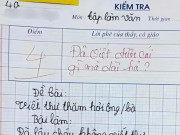 4a
KIỂM TRA
Môn: tập làm văn
Thời gian
Điểm
Lời phê của thầy, cô giáo
4
Đã viết chết cái
gì mà dài hả?
Đề bài:
Viết thư thăm hỏi ông/bà
Bài làm:
Đã lâu cháu không viết thư